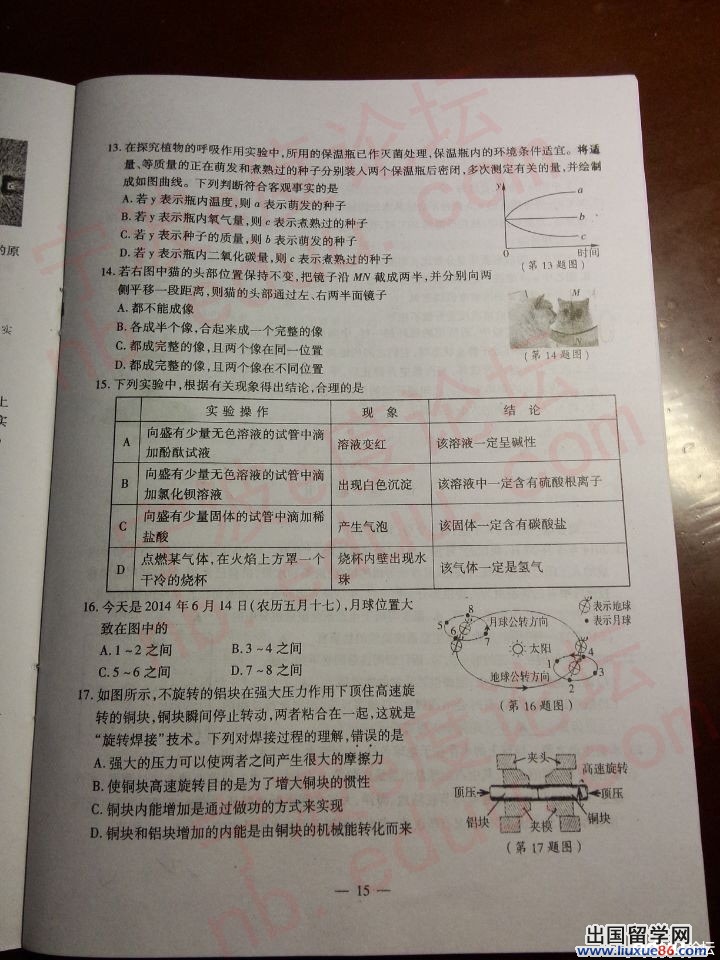 13. 在探究植物的呼吸作用实验中,所用的保温瓶已作灭菌处理,保温瓶内的环境条件适宜。将适
量、等质量的正在萌发和煮熟过的种子分别装人两个保温瓶后密闭,多次测定有关的量,并绘制
成如图曲线。下列判断符合客观事实的是
A. 若 y 表示瓶内温度,则 a 表示萌发的种子
B. 若 y 表示瓶内氧气量,则 c 表示煮熟过的种子
C. 若 y 表示种子的质量,则 b 表示萌发的种子
D. 若 y 表示瓶内二氧化碳量,则 c 表示煮熟过的种子
y
a
b
c
0 时间
(第 13 题图)
14. 若右图中猫的头部位置保持不变,把镜子沿 MN 截成两半,并分别向两
侧平移一段距离,则猫的头部通过左、右两半面镜子
A. 都不能成像
B. 各成半个像,合起来成一个完整的像
C. 都成完整的像,且两个像在同一位置
D. 都成完整的像,且两个像在不同位置
M
N
(第 14 题图)
15. 下列实验中,根据有关现象得出结论,合理的是
实验操作 现象 结论
A 向盛有少量无色溶液的试管中滴
加酚酞试液 溶液变红 该溶液一定呈碱性
B 向盛有少量无色溶液的试管中滴
加氯化钡溶液 出现白色沉淀 该溶液中一定含有硫酸根离子
C 向盛有少量固体的试管中滴加稀
盐酸 产生气泡 该固体一定含有碳酸盐
D 点燃某气体,在火焰上方罩一个
干冷的烧杯 烧杯内壁出现水
珠 该气体一定是氢气
16. 今天是 2014 年 6 月 14 日(农历五月十七),月球位置大
致在图中的
A. 1~2 之间 B. 3~4 之间
C. 5~6 之间 D. 7~8 之间
表示地球
表示月球
月球公转方向
太阳
地球公转方向
5
8
6
7
1
4
3
2
(第 16 题图)
17. 如图所示,不旋转的铝块在强大压力作用下顶住高速旋
转的铜块,铜块瞬间停止转动,两者粘合在一起,这就是
“旋转焊接”技术。下列对焊接过程的理解,错误的是
A. 强大的压力可以使两者之间产生很大的摩擦力
B. 使铜块高速旋转目的是为了增大铜块的惯性
C. 铜块内能增加是通过做功的方式来实现
D. 铜块和铝块增加的内能是由铜块的机械能转化而来
夹头
高速旋转
顶压
顶压
铝块
夹模
铜块
(第 17 题图)
— 15 —
的原
实
上
实
出国留学网
www.liuxue86.com